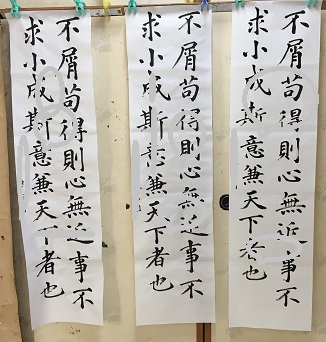 不屑苟得則心無近事不
求小成斯意兼天下者也
不屑苟得則心無近事不
求小成斯意兼天下者也
不屑苟得則心無近事不
求小成斯意兼天下者也